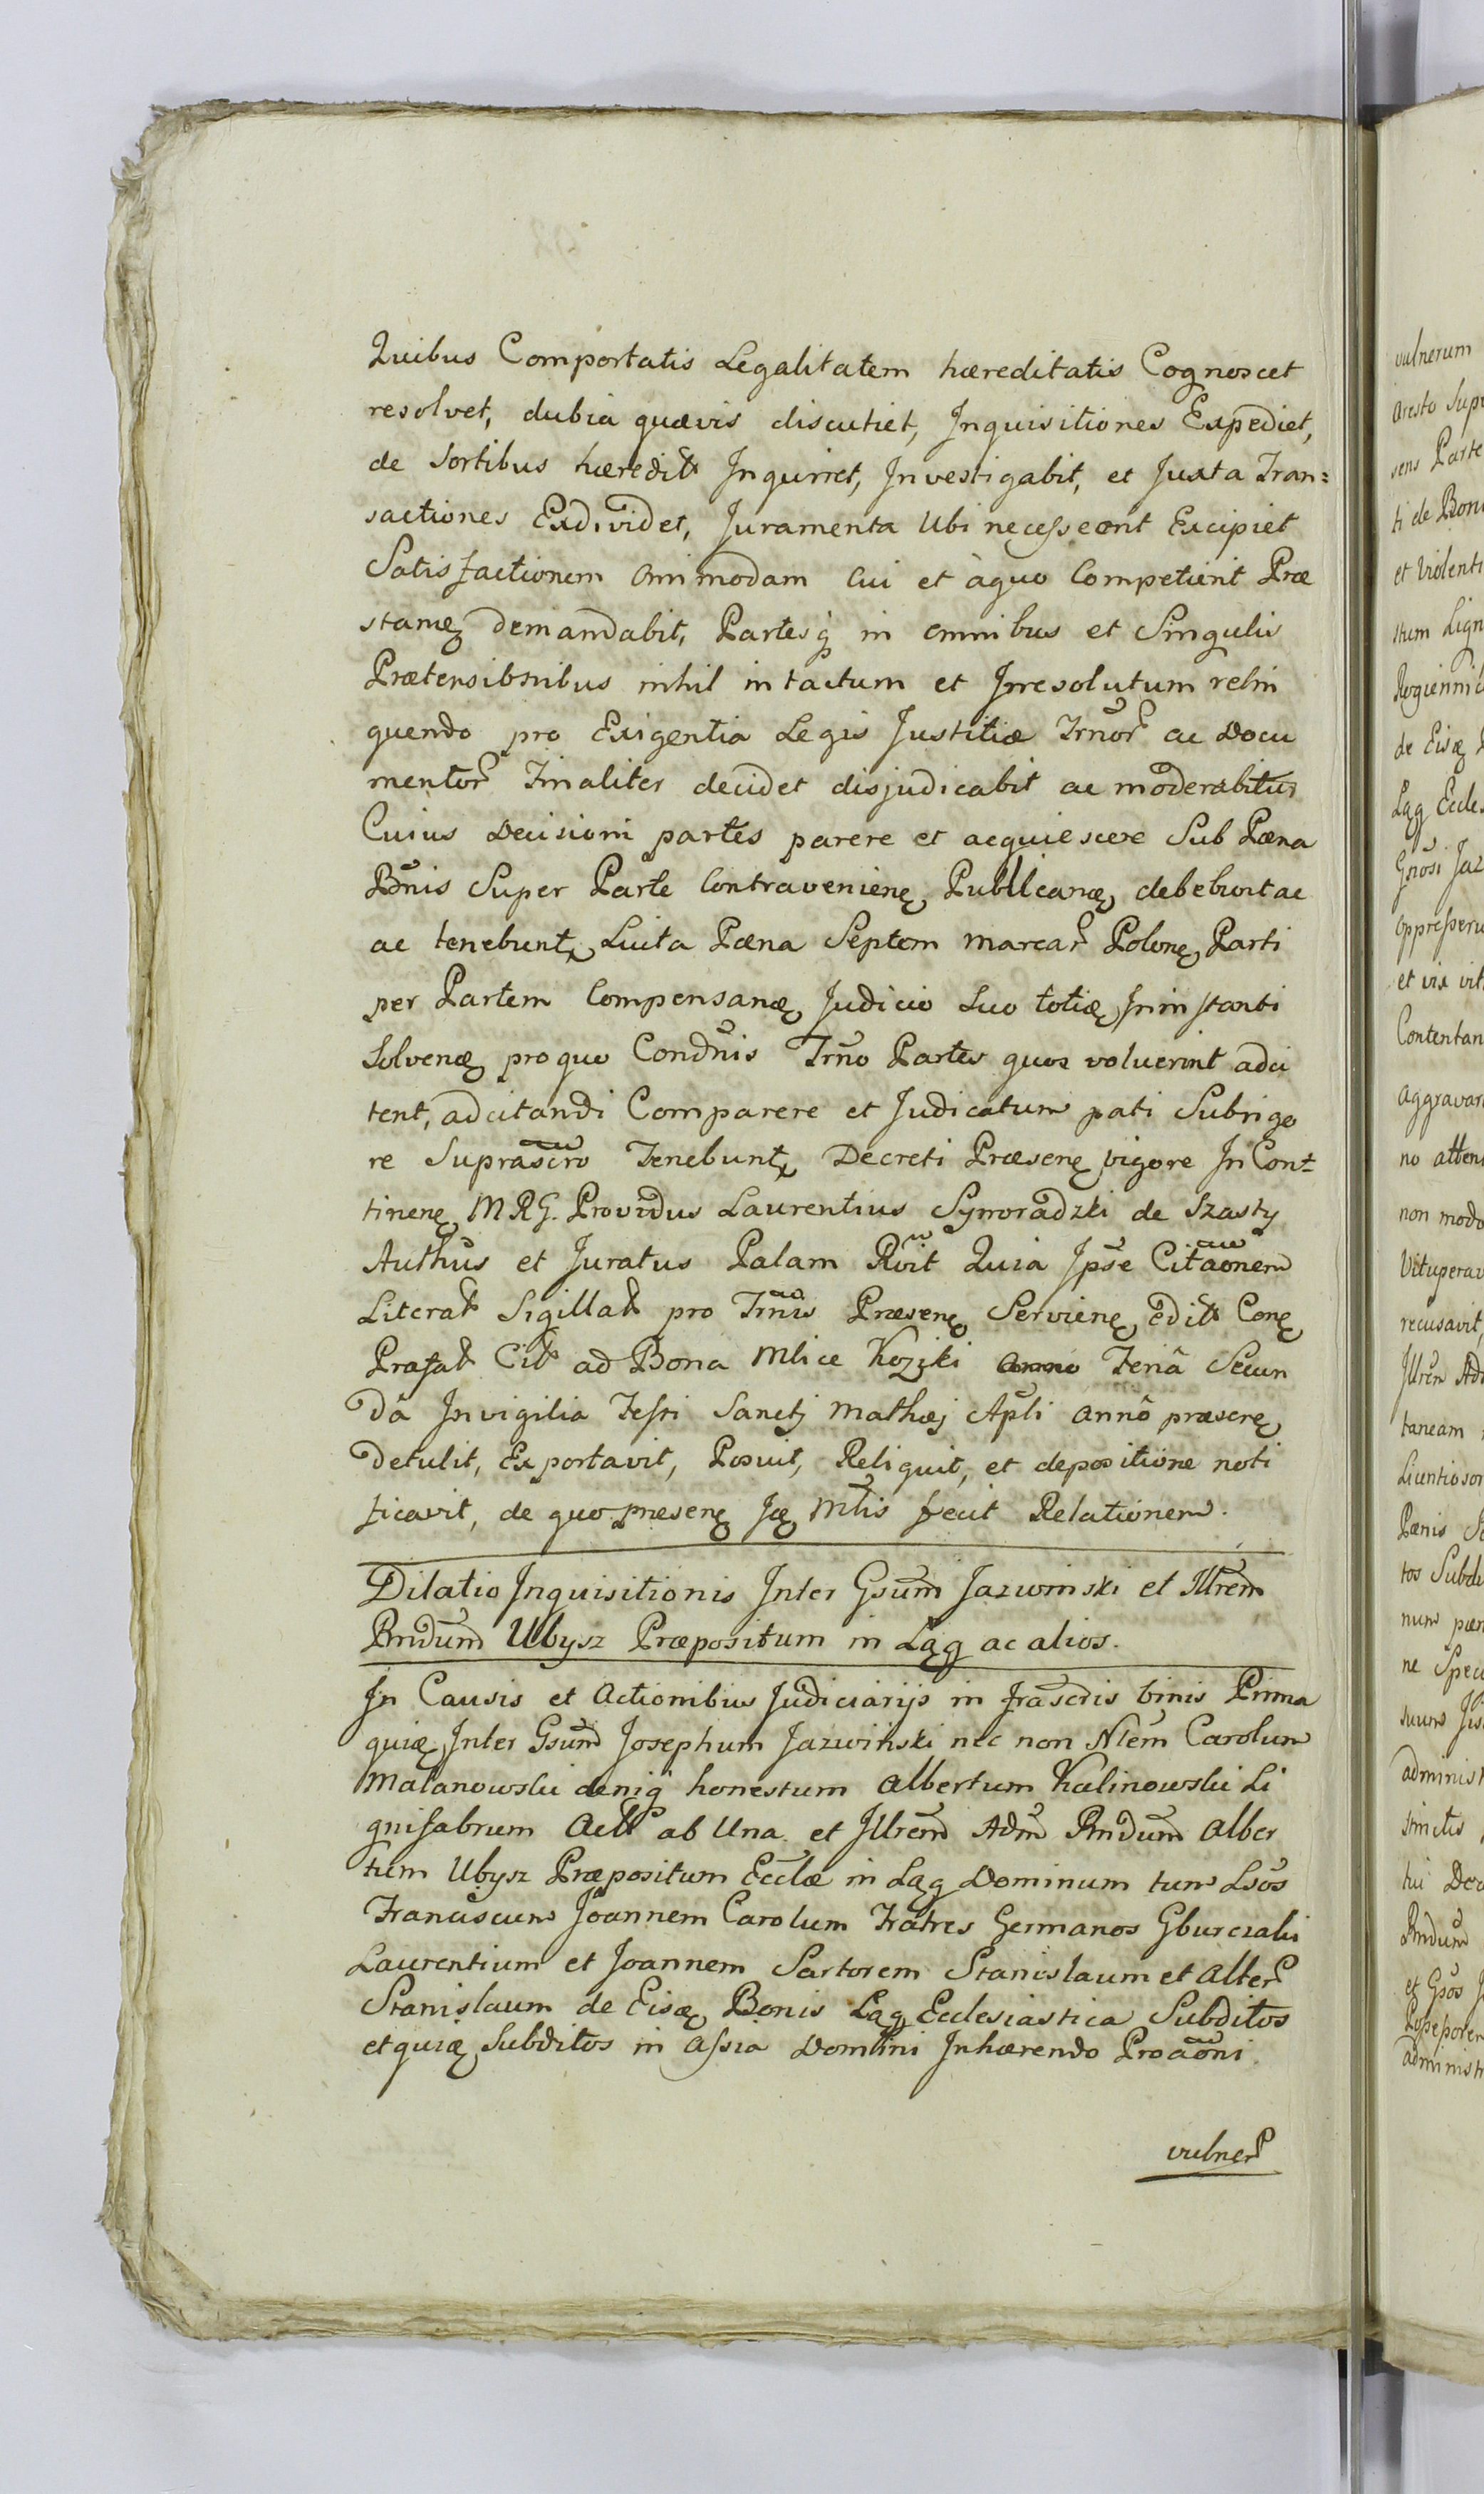 Quibus Comportatis Legalitatem hæreditatis Cognoscet
resolvet, dubia quævis discutiet, Inquisitiones Expediet,
de Sortibus hæredit Inquiriet, Investigabit, et Juxta Tran=
sactiones Exdividet, Juramenta Ubi necesse erint Excipiet
Satisfactionem Omnimodam Cui et àquo Competient Præ
stanę demandabit, Partesq̃ in omnibus et Singulis
Prætensibnibus nihil intactum et Irresolutum relin
quendo pro Exigentia Legis Justitiæ Trnor ac Docu
mentor Finaliter decidet disjudicabit ac moderabitur
Cuius Decisioni partes parere et acquiescere Sub Pæna
Bñis Super Parte Contravenienę Publicanę debebunt ac
ac tenebunt, Luita Pæna Septem marcar Polonę Parti
per Partem Compensanę Judicio Suo totię Ininstanti
Solvenę pro quo Condñis Trño Partes quos voluerint adci
tent, adcitandi Comparere et Judicatum pati Subrigo
re Suprascro Tenebunt, Decreti Præsenę vigore In Con=
tinenę MRG. Providus Laurentius Synoradzki de Szasty
Authũs et Juratus Palam Rṽit Quia Ipse Citaõnem
Literat Sigillat pro Trñis Præsenę Servienę edit Conę
Prafat Cit ad Bona Mlice Kozzki anno Feriâ Secun
dâ Invigilia Festi Sanctj Mathæj Apli annô præsenę
detulit, Exportavit, Posuit, Reliquit, et depositione noti
ficavit, de quo præsenę Ję Mtis fecit Relationem.
Dilatio Inquisitionis Inter Gsum Jazwinski et Illrem
Rndum Ubysz Præpositum in Łąg ac alios.
In Causis et Actionibus Judiciarijs in frascris binis Prima
quię Inter Gsum Josephum Jazwinski nec non Nlem Carolum
Malanowski deniq̃ honestum Albertum Kalinowski Li
gnifabrum Act ab Una et Illrem Adm Rndum Alber
tum Ubysz Præpositum Ecclæ in Łąg Dominum tum Lsos
Franciscum Joannem Carolum Fratres Germanos Gburczaki
Laurentium et Joannem Sartorem Stanislaum et Alter
Stanislaum de Eisdę Bonis Łąg Ecclesiastica Subditos
et quię Subditos in Assia Domini Inhærendo Proaõni
vulner
vulnerum
Aresto Sup
sens Parte
ti de Boni
et Violenti
stum Lign
de Eisę
Łąg Eccles
Gnosi Jaz
oppresseru
et vix vit
Contentan
aggravar
no atten
non modo
Vituperav
recusavit,
Illrem Ad
taneam
Licentiosor
Pænis
tos Subdi
num pæn
ne Speci
suum
administ
stinctis
tui Dec
Rndum
et Gsos
Possessorem
administr